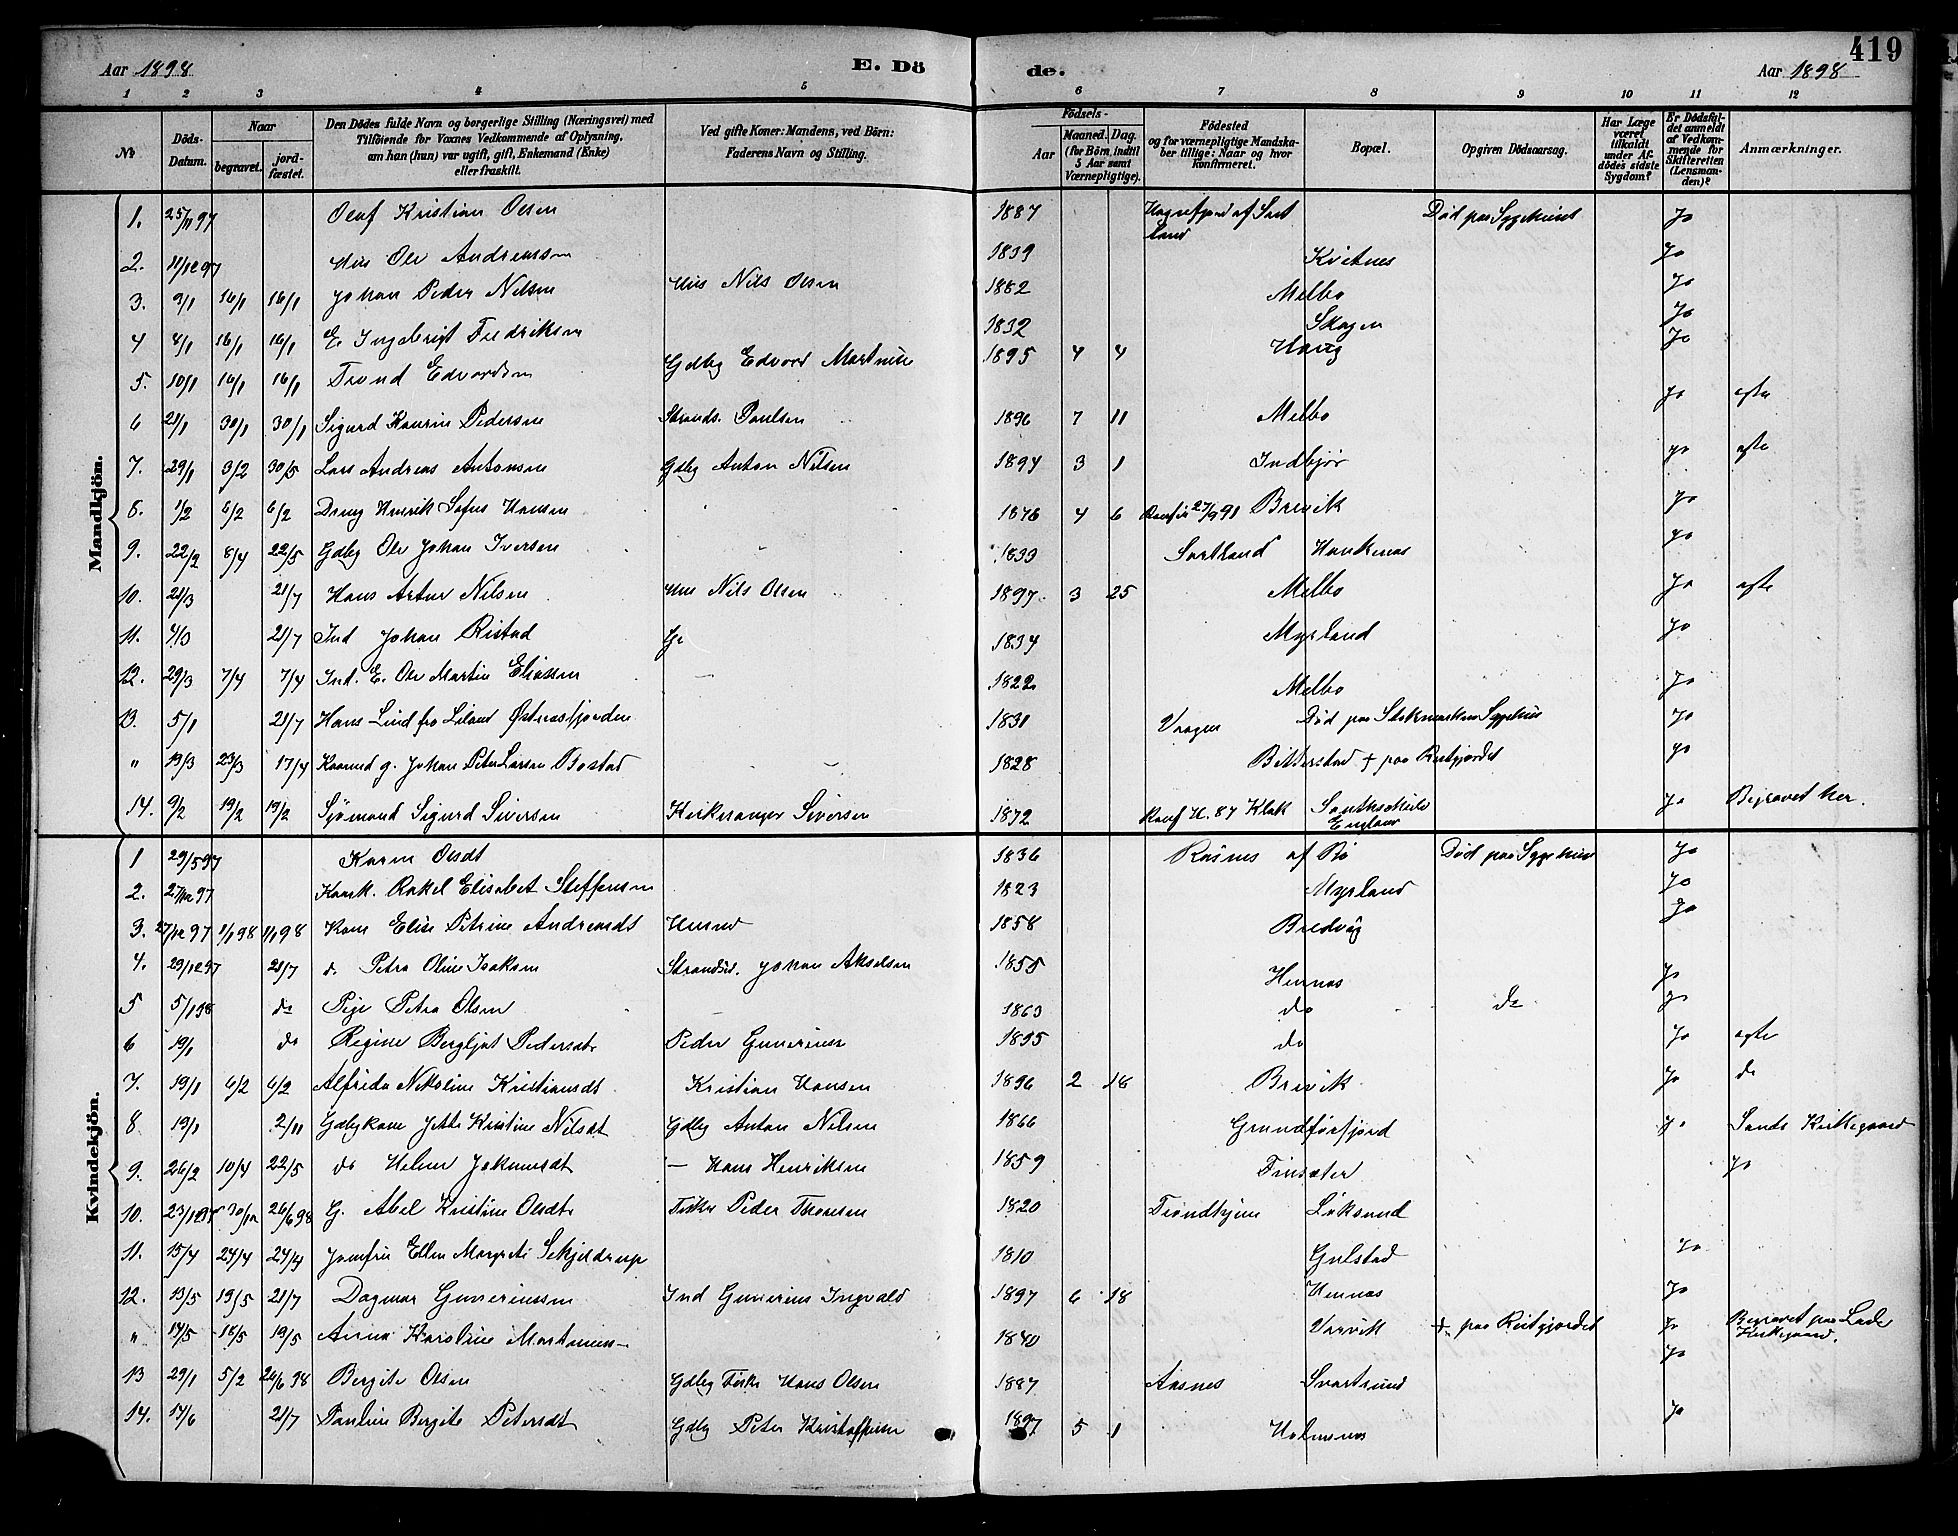 419
Aar 1898 E. Dö de. Aar 1898
1 2 3 4 5 6 7 8 9 10 11 12
№ Döds-Datum. Naar begravet. jordfæstet. Den Dödes fulde Navn og borgerlige Stilling (Næringsvei) med Tilföiende for Voxnes Vedkommende af Oplysning, om han (hun) var ugift, gift, Enkemand (Enke) eller fraskilt. Ved gifte Koner: Mandens, ved Börn: Faderens Navn og Stilling. Födsels- Aar Maaned. Dag. (for Börn, indtil 5 Aar samt Værnepligtige). Födested og for værnepligtige Mandskaber tillige: Naar og hvor konfirmeret. Bopæl. Opgiven Dödsaarsag. Har Læge været tilkaldt under Afdödes sidste Sygdom? Er Dödsfaldet anmeldt af Vedkommende for Skifteretten (Lensmanden)? Anmærkninger.
Mandkjön.
1. 25/11 97 Olaf Kristian Olsen 1887 af Sortland Död paa Sygehuset Jo
2. 11/12 97 Ole Andreassen 1839 Kvitnes Jo
3. 9/1 16/1 16/1 Johan Peder Nilsen Nils Olsen 1882 Melbo Jo
4 4/1 16/1 16/1 E. Ingebrigt Fredriksen 1832 Skogen Jo
5. 10/1 16/1 16/1 Trond Edvardsen Gdbg Edvard 1895 4 4 Haug Jo
6 21/1 30/1 30/1 Sigurd Pedersen Strands. Paulsen 1896 7 11 Melbo Jo egte
7. 29/1 3/2 30/5 Lars Andreas Antonsen Gdbg Anton Nilsen 1894 3 1 Indbjör Jo egte
8. 1/2 6/2 6/2 Dreng Henrik Sofus Hansen 1876 4 6 Konfir 27/9 91 Brevik Jo
9. 22/2 8/4 22/5 Gdbg Ole Johan Iversen 1833 Sortland Haukenes Jo
10. 21/3 21/7 Hans Artur Nilsen Nils Olsen 1897. 3 25 Melbo Jo egte
11. 4/3 21/7 Ind Johan Ristad 1834 Myrland Jo
12. 29/3 7/4 7/4 Ind. E. Ole Martin Eliassen 1822 Melbo Jo
13. 5/1 21/7 Hans Lind fra Liland Østnesfjorden 1831 Vaagen Död paa Stokmarknes Sygehus Jo
" 19/3 23/3 17/4 g. Johan Peter Larsen Bostad 1828 Bitterstad + paa Jo
14. 9/2 19/2 19/2 Sjömand Sigurd Siversen Kirkesanger Siversen 1872 Konf H. 87 England Jo Begravet her.
Kvindekjön.
1 29/5 97 Karen Olsdt 1836 Rasnes af Bö Död paa Sygehuset Jo
2. 27/12 97 Rakel Elisabet Steffensen 1823 Myrland Jo
3. 27/12 97 1/1 98 1/1 98 Kone Elise Petrine Andreasdt 1858 Bredvåg Jo
4. 29/12 97 21/7 d. Petra Oline Isaksen Strandsd. Johan Akselsen 1855 Hennes Jo
5 5/1 98 do Pige Petra Olsen 1863 do do Jo
6 19/1 do Regine Bergljot Pedersdt Peder 1895 do Jo egte
7. 19/1 6/2 6/2 Alfrida Nikoline Kristiansdt Kristian Hansen 1896 2 18 Brevik Jo do
8 19/1 2/11 Gdbgkone Jette Kristine Nilsdt Gdbg Anton Nilsen 1866 Grundförfjord Jo Sands Kirkegaard
9. 26/2 10/4 22/5 do – Hans Henriksen 1859 Finsæter Jo
10. 23/12 30/12 26/6 98 G. Abel Kristine Olsdt Peder Thomsen 1820 Trondhjem Löksund
11. 15/4 24/4 24/4 Jomfru Ellen Margrete Schjelderup 1810 Gulstad Jo
12. 13/5 19/5 21/7 Dagmar Gunerius­sen Ind Gunerius Ingvald 1897 6 18 Hennes Jo
" 14/5 18/5 19/5 Anna Karoline 1840 + paa Jo Begravet paa Kirkegaard.
13 29/1 5/2 26/6 98 Bergite Olsen Gdbg Hans Olsen 1887 Aasnes Svartsund Jo
14. 14/6 21/7 Pauline Bergite Petersdt Gdbg Peter Kristoffersen 1897 5 1 Holmsnes Jo